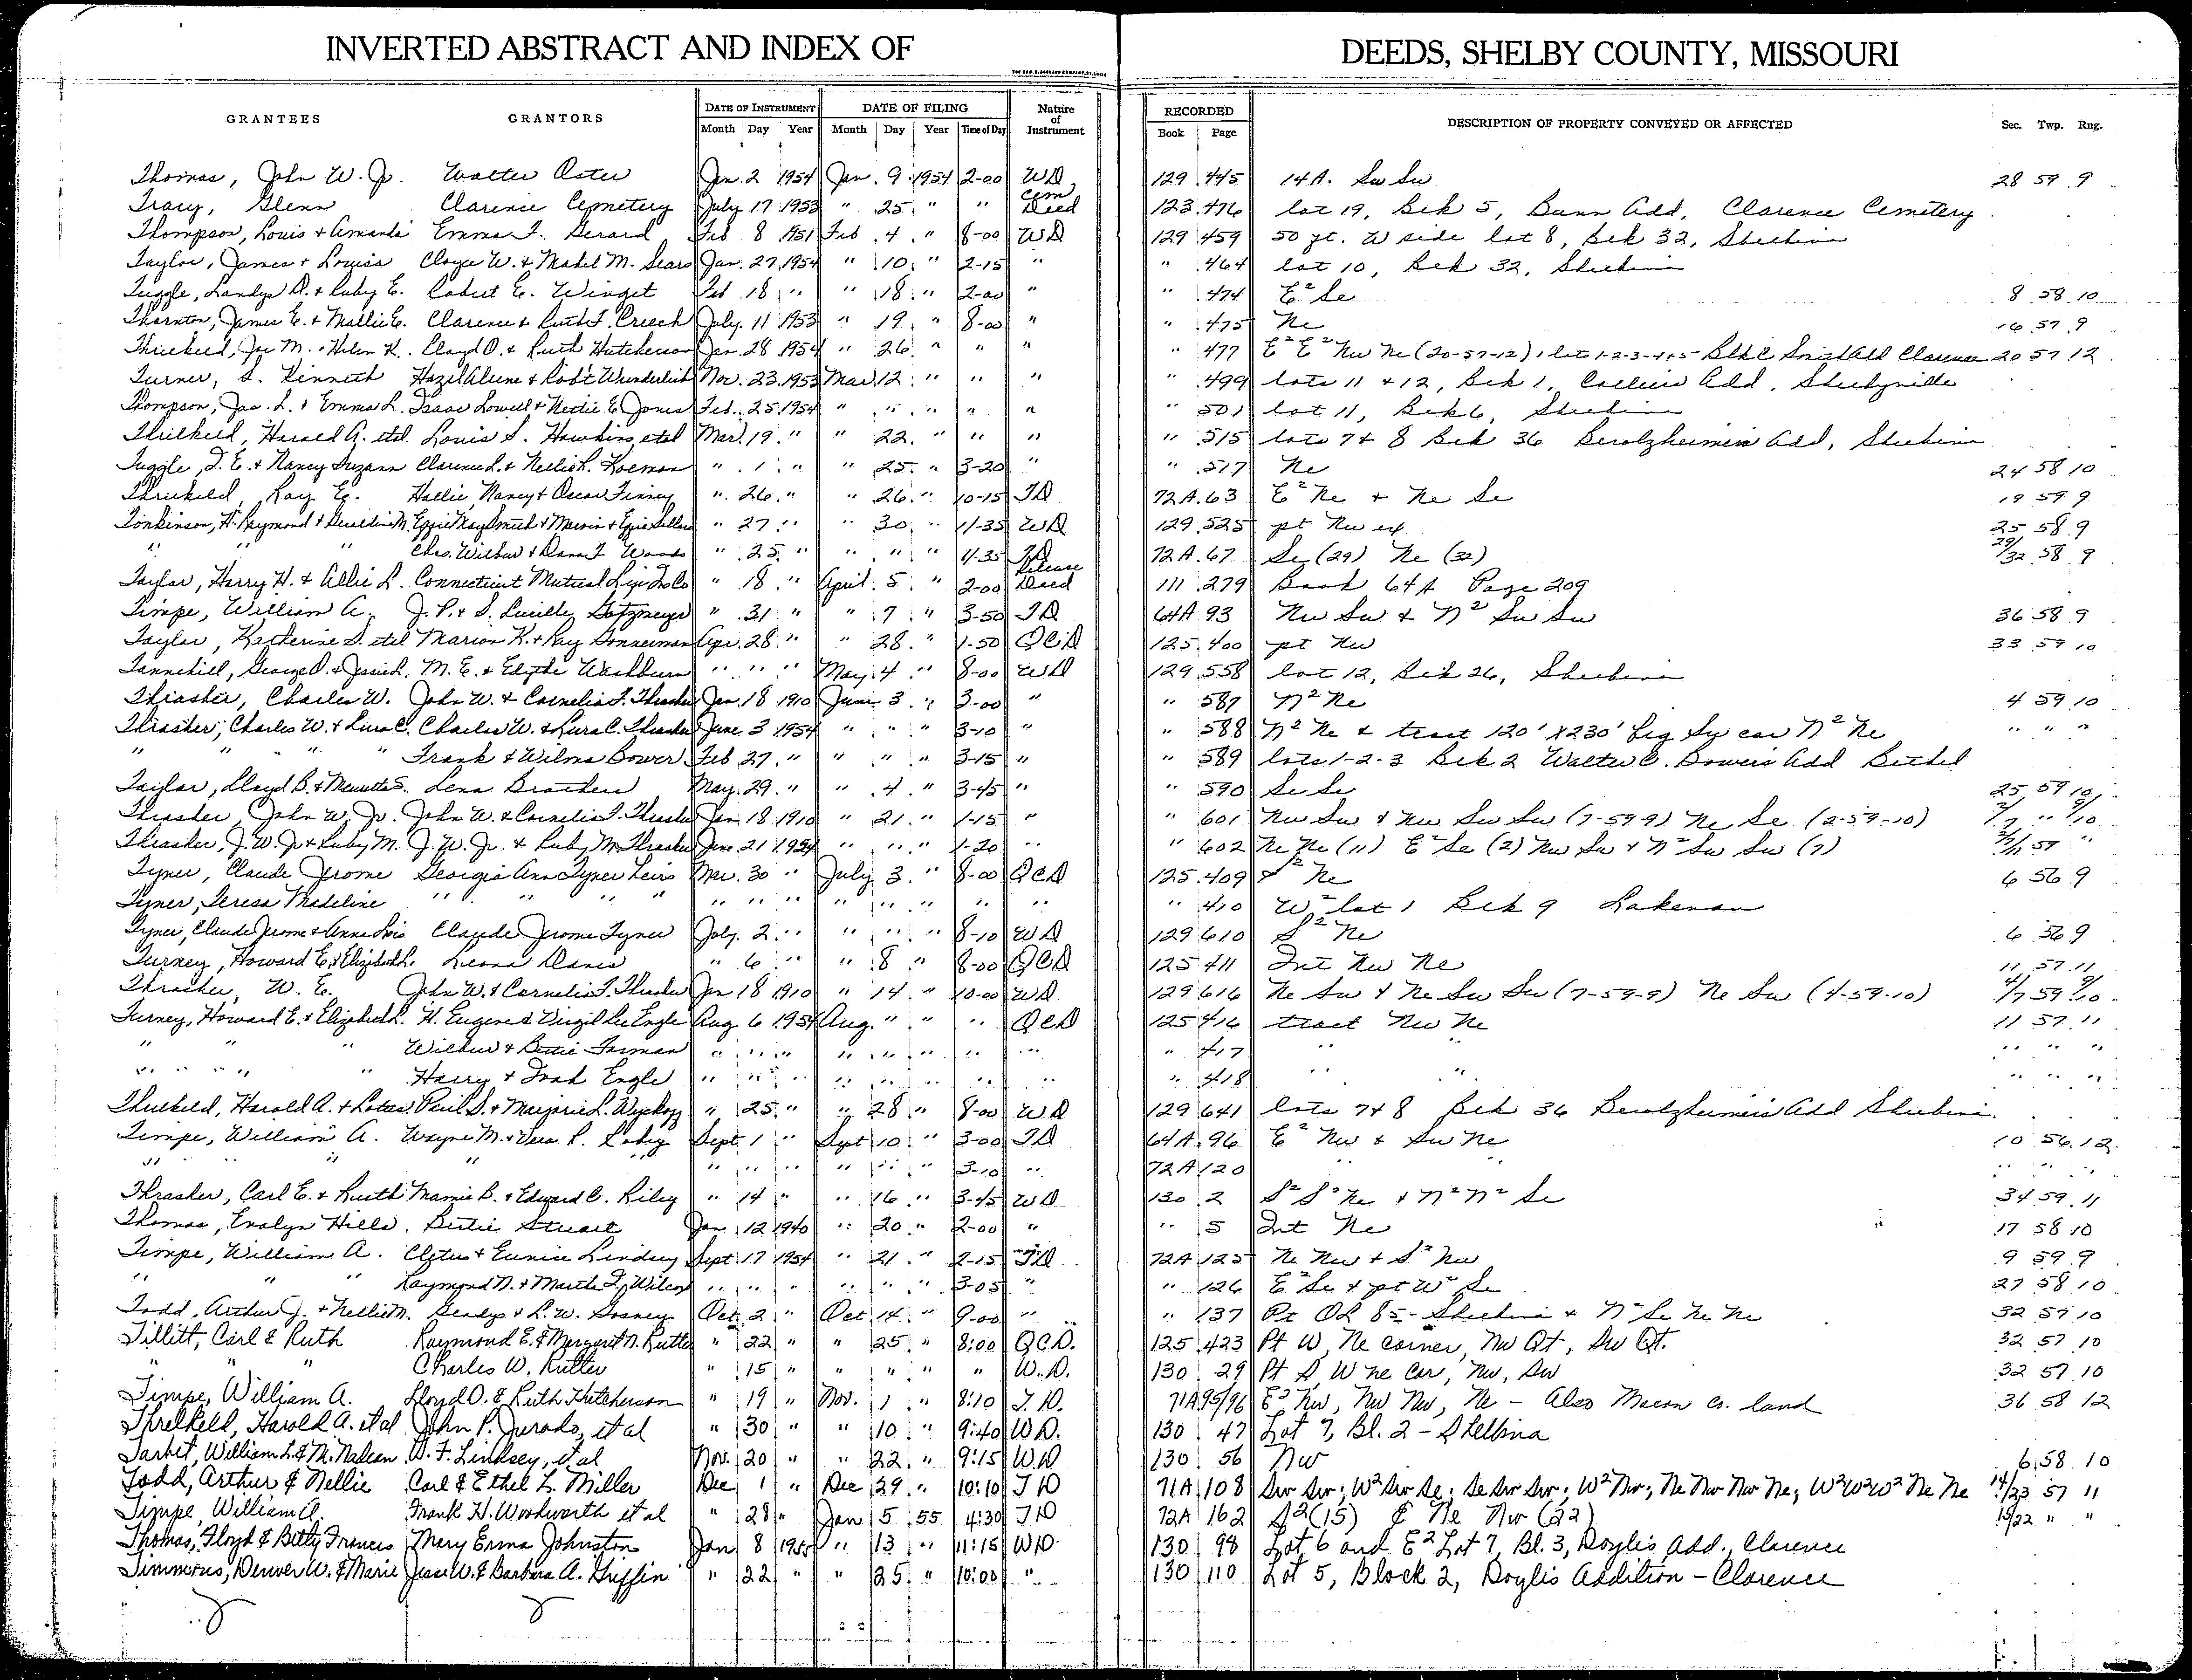 INVERTED ABSTRACT AND INDEX OF DEEDS, SHELBY COUNTY, MISSOURI
GRANTEES GRANTORS DATE OF INSTRUMENT DATE OF FILING Nature of Instrument RECORDED DESCRIPTION OF PROPERTY CONVEYED OR AFFECTED Sec. Twp. Rng.
Month Day Year Month Day Year Time of Day Book Page
Thomas, John W. Jr. Walter Oster Jan. 2 1954 Jan. 9 1954 2-00 WD 129 445 14A. Sw Sw 28 59 9
Tracy, Glenn Clarence Cemetery July 17 1953 " 25 " " Cem Deed 123 476 lot 19, Blk 5, Bunn Add, Clarence Cemetery
Thompson, Louis & Amanda Emma F. Gerard Feb 8 1951 Feb 4 " 8-00 WD 129 459 50 ft. W side lot 8, Blk 32, Shelbina
Taylor, James & Louisa Cloyce W. & Mabel M. Sears Jan. 27 1954 " 10 " 2-15 " " 464 lot 10, Blk 32, Shelbina
Tuggle, Landys D. & Ruby E. Robert E. Winget Feb 18 " " 18 " 2-00 " " 474 E² Se 8 58 10
Thornton, James E. & Mallie E. Clarence & Ruth F. Creech July 11 1953 " 19 " 8-00 " " 475 Ne 16 57 9
Threlkeld, Joe M. & Helen K. Cloyd O. & Ruth Hutcherson Jan. 28 1954 " 26 " " " " 477 E² E² Nw Ne (20-57-12) & lots 1-2-3-4+5 Blk C Add Clarence 20 57 12
Turner, S. Kenneth Hazel Alene & Robt Wunderlich Nov. 23 1953 Mar 12 " " " " 499 lots 11 & 12, Blk 1, Colliers Add, Shelbyville
Thompson, Jas. L. & Emma L. Isaac Lowell & Nettie E. Jones Feb. 25 1954 " " " " " " 501 lot 11, Blk 6, Shelbina
Threlkeld, Harold A. etal. Louis S. Hawkins, etal Mar. 19 " " 22 " " " " 515 lots 7 & 8 Blk 36 Berolzheimers Add, Shelbina
Tuggle, T. E. & Nancy Suzann Clarence L. & Nellie L. Koeman " 1 " " 25 " 3-20 " " 517 Ne 24 58 10
Threlkeld, Ray E. Hallie, Nancy & Oscar Finney " 26 " " 26 " 10-15 TD 72A 63 E² Ne & Ne Se 19 59 9
Tonkinson, H. Raymond & Geraldine M. Effie May Smith & Marvin & Effie Sellers " 27 " " 30 " 11-35 WD 129 525 pt Nw exp 25 58 9
" " " Chas. Wilbur & Woods " 25 " " " " 11-35 TD 72A 67 Se (29) Ne (32) 29/32 58 9
Taylor, Harry H. & Allie L. Connecticut Mutual Life Ins Co " 18 " April 5 " 2-00 Release Deed 111 279 Book 64A Page 209
Timpe, William A. J. P. & S. Lucille Stotzmeyer " 31 " " 7 " 3-50 TD 64A 93 Nw Sw & N² Sw Sw 36 58 9
Taylor, Katherine S. etal Marion K. & Fay Sonneman Apr. 28 " " 28 " 1-50 QCD 125 400 pt Nw 33 59 10
Tannehill, George O. & Jessie L. M. E. & Edythe Washburn " " " May 4 " 8-00 WD 129 558 lot 12, Blk 26, Shelbina
Thrasher, Charles W. John W. & Cornelia F. Thrasher Jan. 18 1910 June 3 " 3-00 " " 587 N² Ne 4 59 10
Thrasher, Charles W. & Lura C. Charles W. & Lura C. Thrasher June 3 1954 " " " 3-10 " " 588 N² Ne & tract 120' X 230' beg Sw cor N² Ne " " "
" " " " Frank & Wilma Bower Feb 27 " " " " 3-15 " " 589 lots 1-2-3 Blk 2 Walter C. Bowers Add Bethel
Taylor, Lloyd B. & S. Lena Brothers May 29 " " 4 " 3-45 " " 590 Se Se 25 59 10
Thrasher, John W. Jr. John W. & Cornelia F. Thrasher Jan 18 1910 " 21 " 1-15 " " 601 Nw Sw & Nw Sw Sw (7-59-9) Ne Se (2-59-10) 2/7 " 9/10
Thrasher, J. W. Jr & Ruby M. J. W. Jr. & Ruby M. Thrasher June 21 1954 " " " 1-20 " " 602 Ne Ne (11) E² Se (2) Nw Sw & N² Sw Sw (7) 59 "
Tyner, Claude Jerome Georgia Ann Tyner heirs Mar. 30 " July 3 " 8-00 QCD 125 409 S² Ne 6 56 9
Tyner, Teresa Madeline " " " " " " " " " " " " " 410 W² lot 1 Blk 9 Lakenan
Tyner, Claude Jerome & Anna Lois Claude Jerome Tyner July 2 " " " " 8-10 WD 129 610 S² Ne 6 56 9
Turney, Howard E. & Elizabeth L. Leona Davis " 6 " " 8 " 8-00 QCD 125 411 Int Nw Ne 11 57 11
Thrasher, W. E. John W. & Cornelia F. Thrasher Jan 18 1910 " 14 " 10-00 WD 129 616 Ne Sw & Ne Sw Sw (7-59-9) Ne Sw (4-59-10) 4/7 59 9/10
Turney, Howard E. & Elizabeth L. H. Eugene & Virgil Lee Engle Aug 6 1954 Aug. " " " QCD 125 416 tract Nw Ne 11 57 11
" " " Wilbur & Bettie Forman " " " " " " " " " 417 " " " " "
" " " " " Harry & Engle " " " " " " " " " 418 " " " " "
Threlkeld, Harold A. & Lotus Paul S. & Marjorie L. Wyckoff " 25 " " 28 " 8-00 WD 129 641 lots 7 & 8 Blk 36 Berolzheimers Add Shelbina.
Timpe, William A. Wayne M. & Vera L. Sept 1 " Sept 10 " 3-00 TD 64A 96 E² Nw & Sw Ne 10 56 12
" " " " " " " " " " 3-10 " 72A 120 " " " " "
Thrasher, Carl E. & Rueth Mamie B. & Edward C. Riley " 14 " " 16 " 3-45 WD 130 2 S² S² Ne & N² N² Se 34 59 11
Thomas, Evalyn Hills Bertie Stuart Jan 12 1940 " 20 " 2-00 " " 5 Int Ne 17 58 10
Timpe, William A. Cletus & Eunice Lindsey Sept. 17 1954 " 21 " 2-15 TD 72A 125 Ne Nw & S² Nw 9 59 9
" " " Raymond N. & Martha F. Wilcox " " " " " " 3-05 " " 126 E² Se & pt W² Se 27 58 10
Todd, Arthur J. & Nellie M. Gladys & L. W. Gosney Oct. 2 " Oct 14 " 9-00 " " 137 Pt OL 85 - Shelbina & N² Se Ne Ne 32 57 10
Tillitt, Carl & Ruth Raymond E. & Margaret N. Rutter " 22 " " 25 " 8:00 QCD. 125 423 Pt W, Ne corner, Nw Qt, Sw Qt. 32 57 10
" " " Charles W. Rutter " 15 " " " " " W.D. 130 29 Pt S W Ne Cor, Nw, Sw 32 57 10
Timpe, William A. Lloyd O. & Ruth Hutcherson " 19 " Nov. 1 " 8:10 T.D. 71A 95/96 E² Nw, Nw Nw, Ne - Also Macon Co. land 36 58 12
Threlkeld, Harold A. et al John P. Jurado, et al " 30 " " 10 " 9:40 WD. 130 47 Lot 7, Bl. 2 - Shelbina
Tarbet, William L. & M. Nadean W. F. Lindsey, et al Nov. 20 " " 22 " 9:15 W.D 130 56 Nw 6 58 10
Todd, Arthur & Nellie Carl & Ethel L. Miller Dec 1 " Dec 29 " 10:10 TD 71A 108 Sw Sw; W² Sw Se; Se Sw Sw; W² Nw; Ne Nw Nw Ne; W² W² W² Ne Ne 14/23 57 11
Timpe, William A. Frank H. Woodworth et al " 28 " Jan 5 55 4:30 TD 72A 162 S² (15) & Ne Nw (22) 15/22 " "
Thomas, Floyd & Betty Frances Mary Erma Johnston Jan 8 1955 " 13 " 11:15 WD. 130 98 Lot 6 and E² Lot 7, Bl. 3, Doylis Add., Clarence
Timmons, Denver W. & Marie Jesse W. & Barbara A. Griffin " 22 " " 25 " 10:00 " 130 110 Lot 5, Block 2, Doylis Addition - Clarence